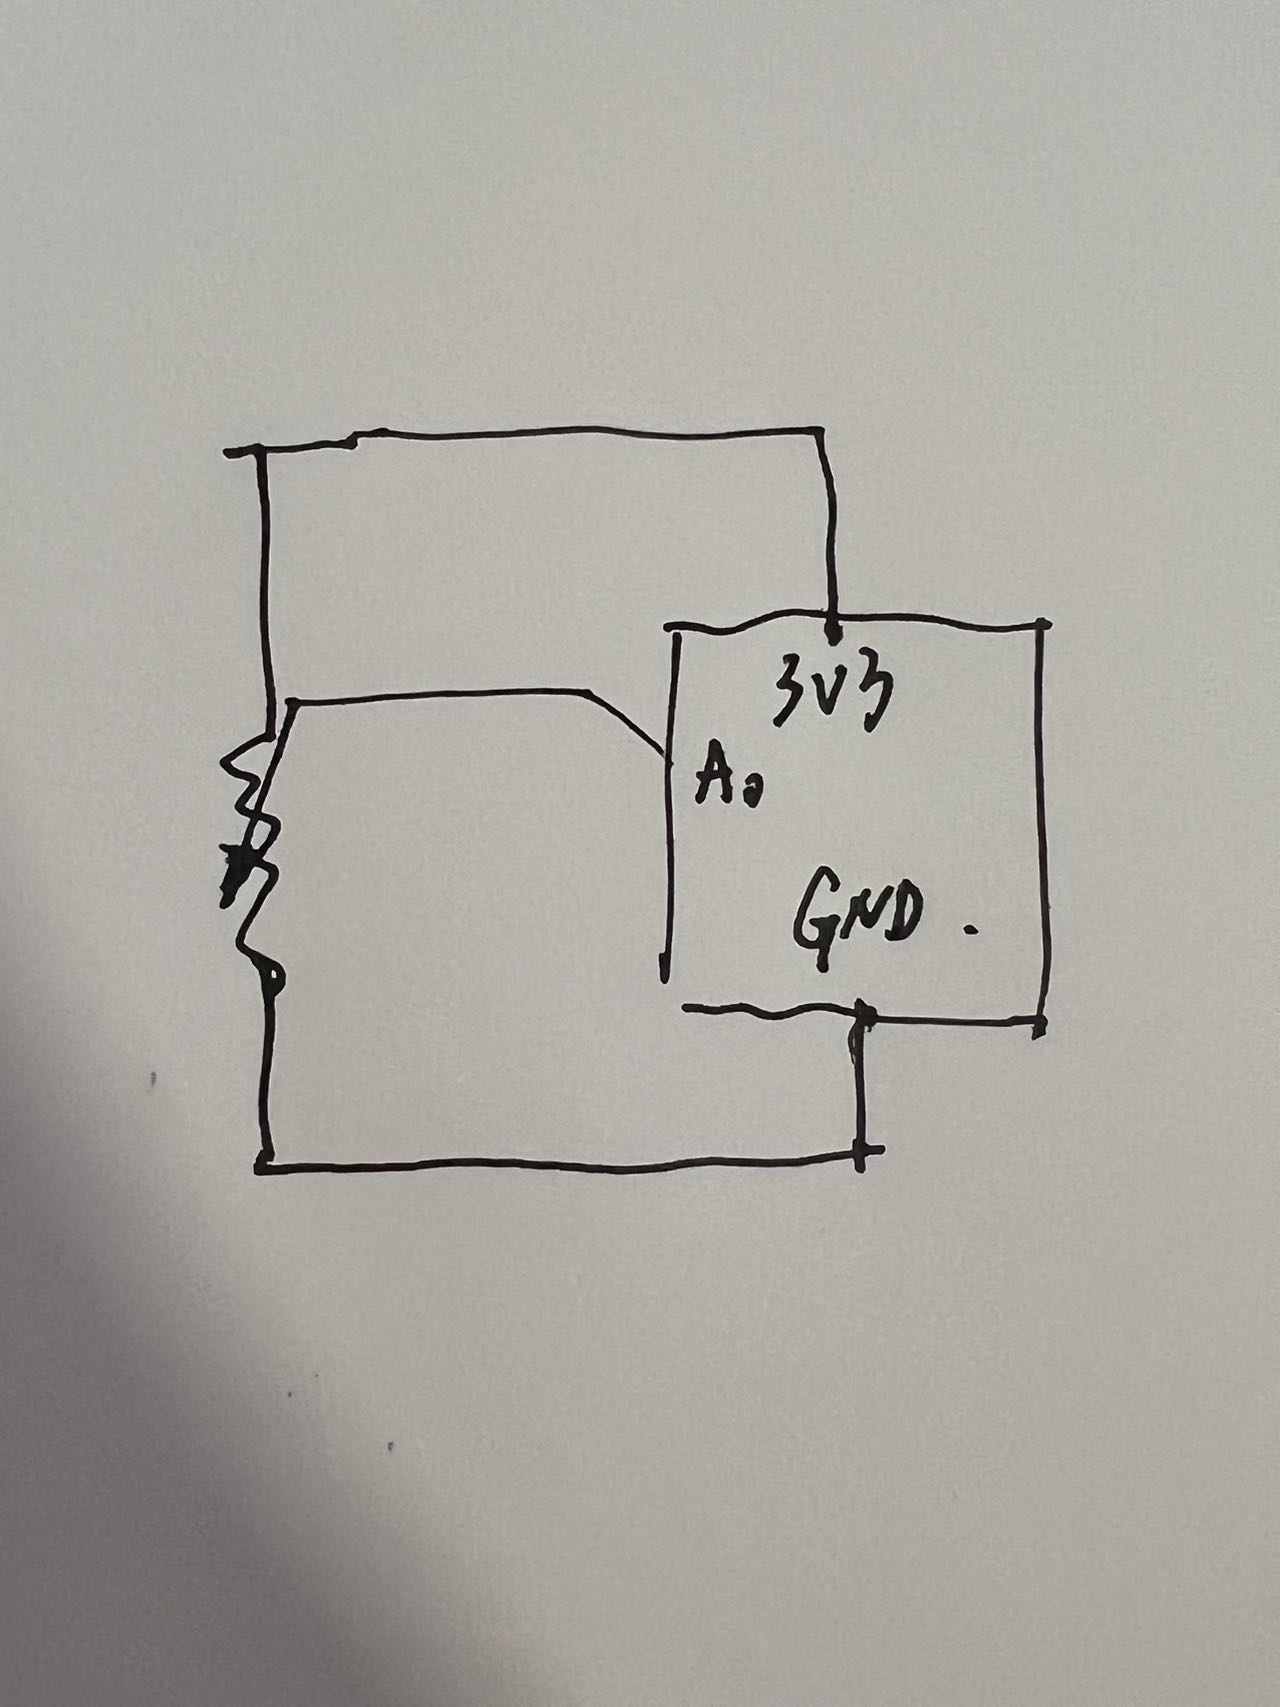 3V3
A0
GND.